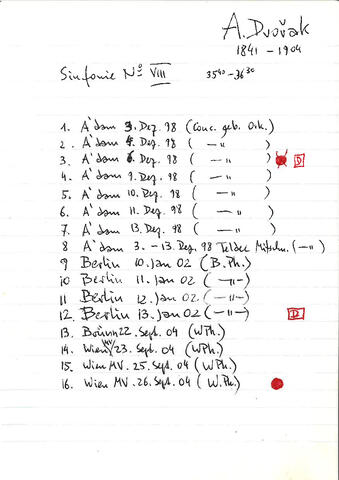 A. Dvořak
1841 - 1904
Sinfonie No VIII 35 40 - 36 30
1. A'dam 3. Dez. 98 (Conc. geb. Ork.)
2. A'dam 4. Dez. 98 ( — " )
3. A'dam 6. Dez. 98 ( — " ) D
4. A'dam 9. Dez. 98 ( — " )
5. A'dam 10. Dez. 98 ( — " )
6. A'dam 11. Dez. 98 ( — " )
7. A'dam 13. Dez. 98 ( — " )
8 A'dam 3. - 13. Dez. 98 Teldec ( — " )
9 Berlin 10. Jan 02 (B. Ph.)
10 Berlin 11. Jan 02 ( — " — )
11 Berlin 12. Jan 02 ( — " — )
12. Berlin 13. Jan 02 ( — " — ) D
13. Brünn 22. Sept. 04 (WPh.)
14. Wien MV 23. Sept. 04 (WPh.)
15. Wien MV. 25. Sept. 04 (WPh.)
16. Wien MV. 26. Sept. 04 (W.Ph.)